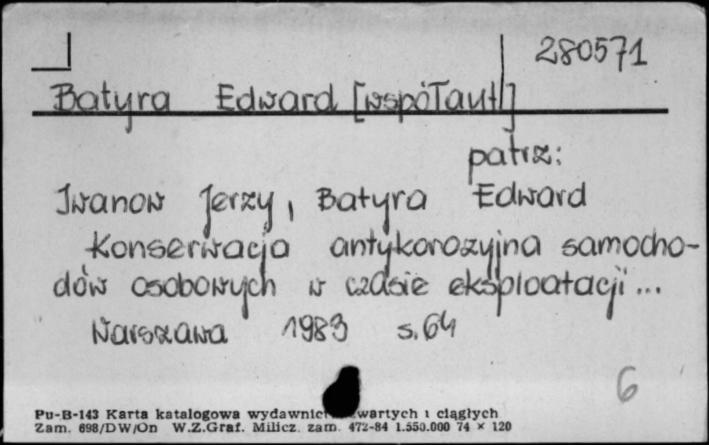 280571
Batyra Edward [współaut]
patrz:
Iwanow Jerzy, Batyra Edward
Konserwacja antykorozyjna samocho-
dów osobowych w czasie eksploatacji...
Warszawa 1983 s.64
6
Pu-B-143 Karta katalogowa wydawnict zwartych i ciągłych
Zam. 698/DW/On W.Z.Graf. Milicz. zam. 472-84 1.550.000 74 × 120